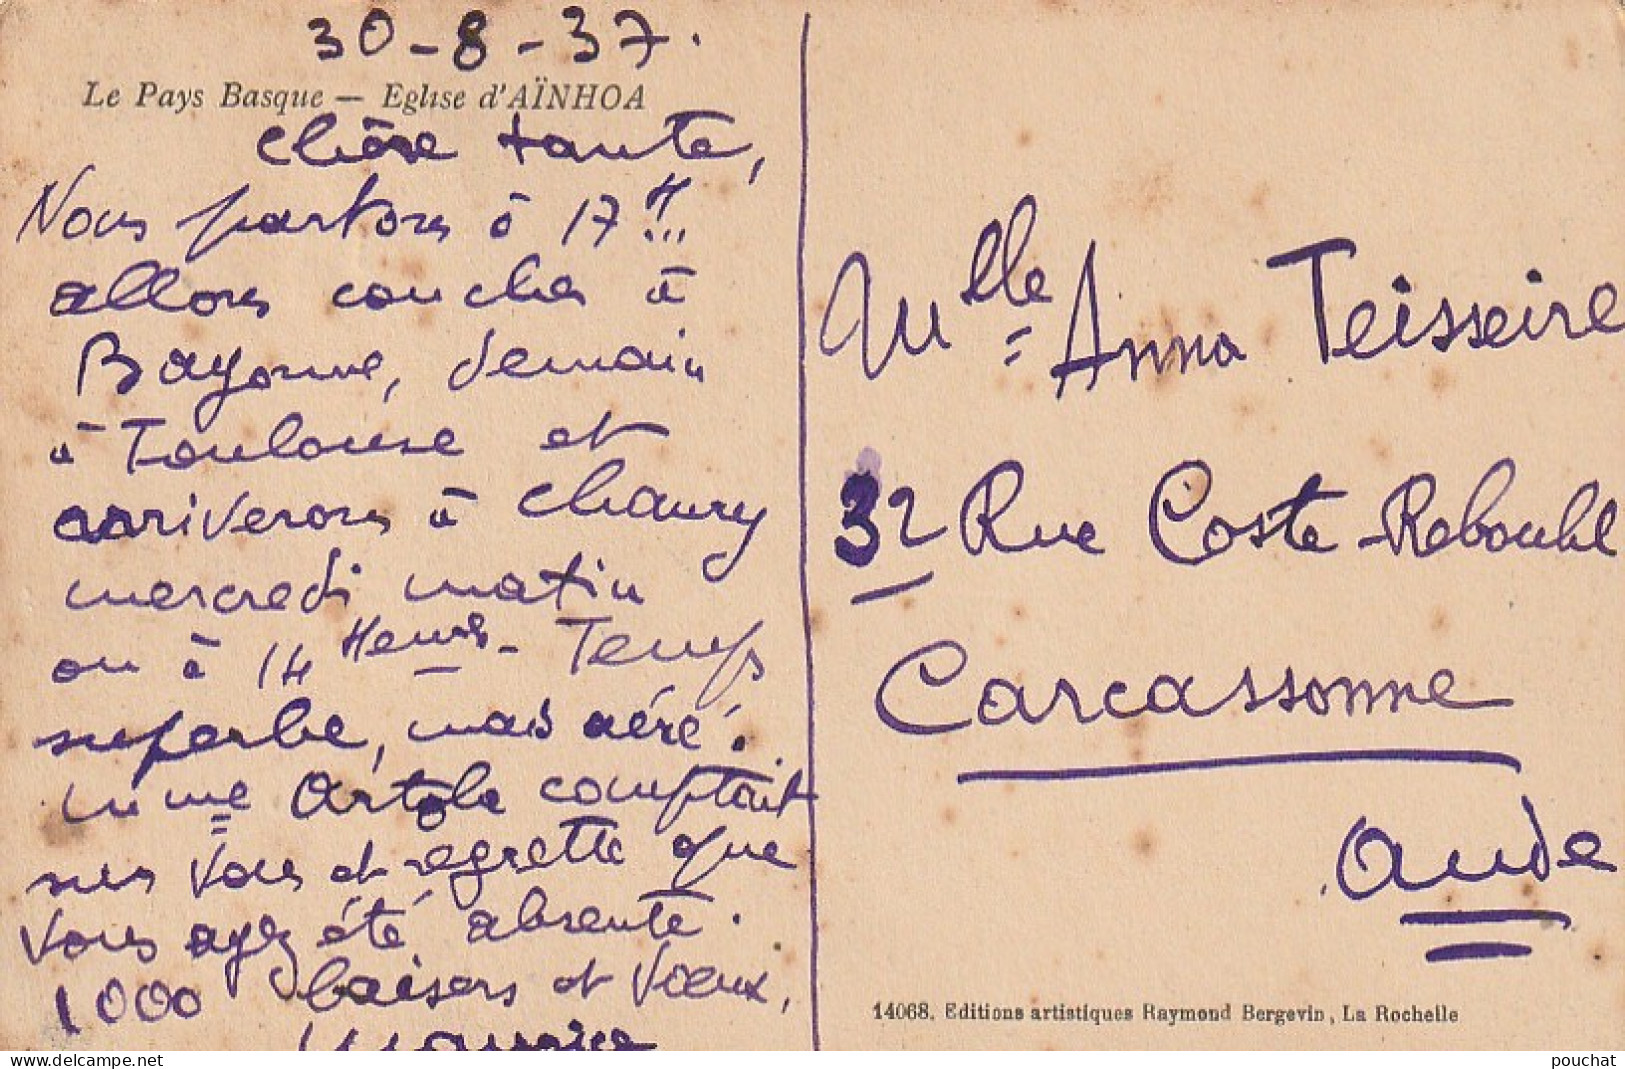 30-8-37.
Le Pays Basque — Eglise d'AÏNHOA
Chère tante,
Nous partons à 17 H...
allons coucher à
Bayonne, demain
à Toulouse et
arriverons à Chaury
mercredi matin
ou à 14 Heures - Temps
superbe, mais aéré.
Mme Artola comptait
sur vous et regrette que
vous ayez été absente.
1000 baisers et Vœux,
Maurice
Mlle Anna Teisseire
32 Rue Coste-Reboulh
Carcassonne
Aude
14068. Editions artistiques Raymond Bergevin, La Rochelle
pouchat